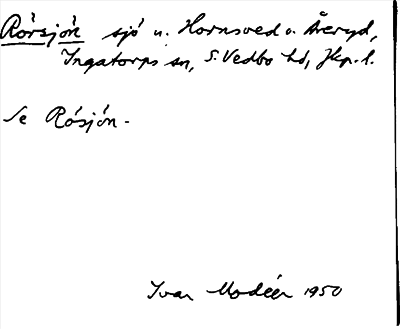 Rörsjön sjö u. Hornsved o. Åkeryd,
Ingatorps sn, S. Vedbo hd, Jkp. l.
Se Rösjön.
Ivar Modéer 1950